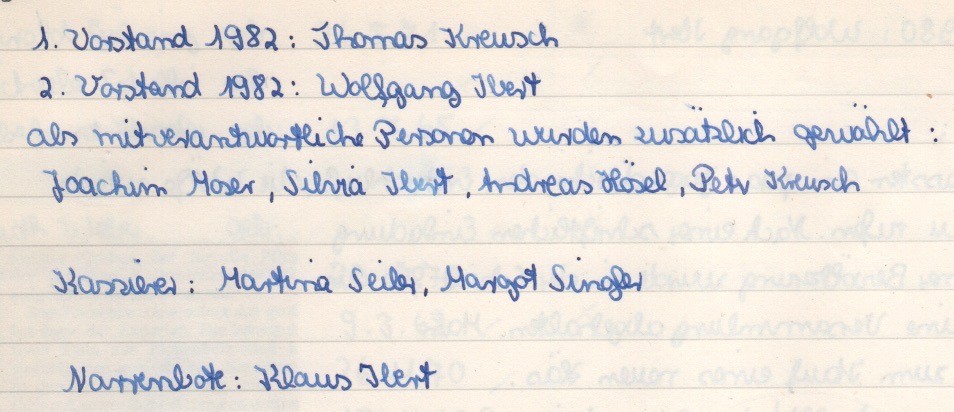 1. Vorstand 1982: Thomas Kreusch
2. Vorstand 1982: Wolfgang Ibert
als mitverantwortliche Personen wurden zusätzlich gewählt:
Joachim Moser, Silvia Ibert, Andreas Hösel, Petr Kreusch
Kassierer: Martina Seiler, Margot Singler
Narrenbote: Klaus Ibert